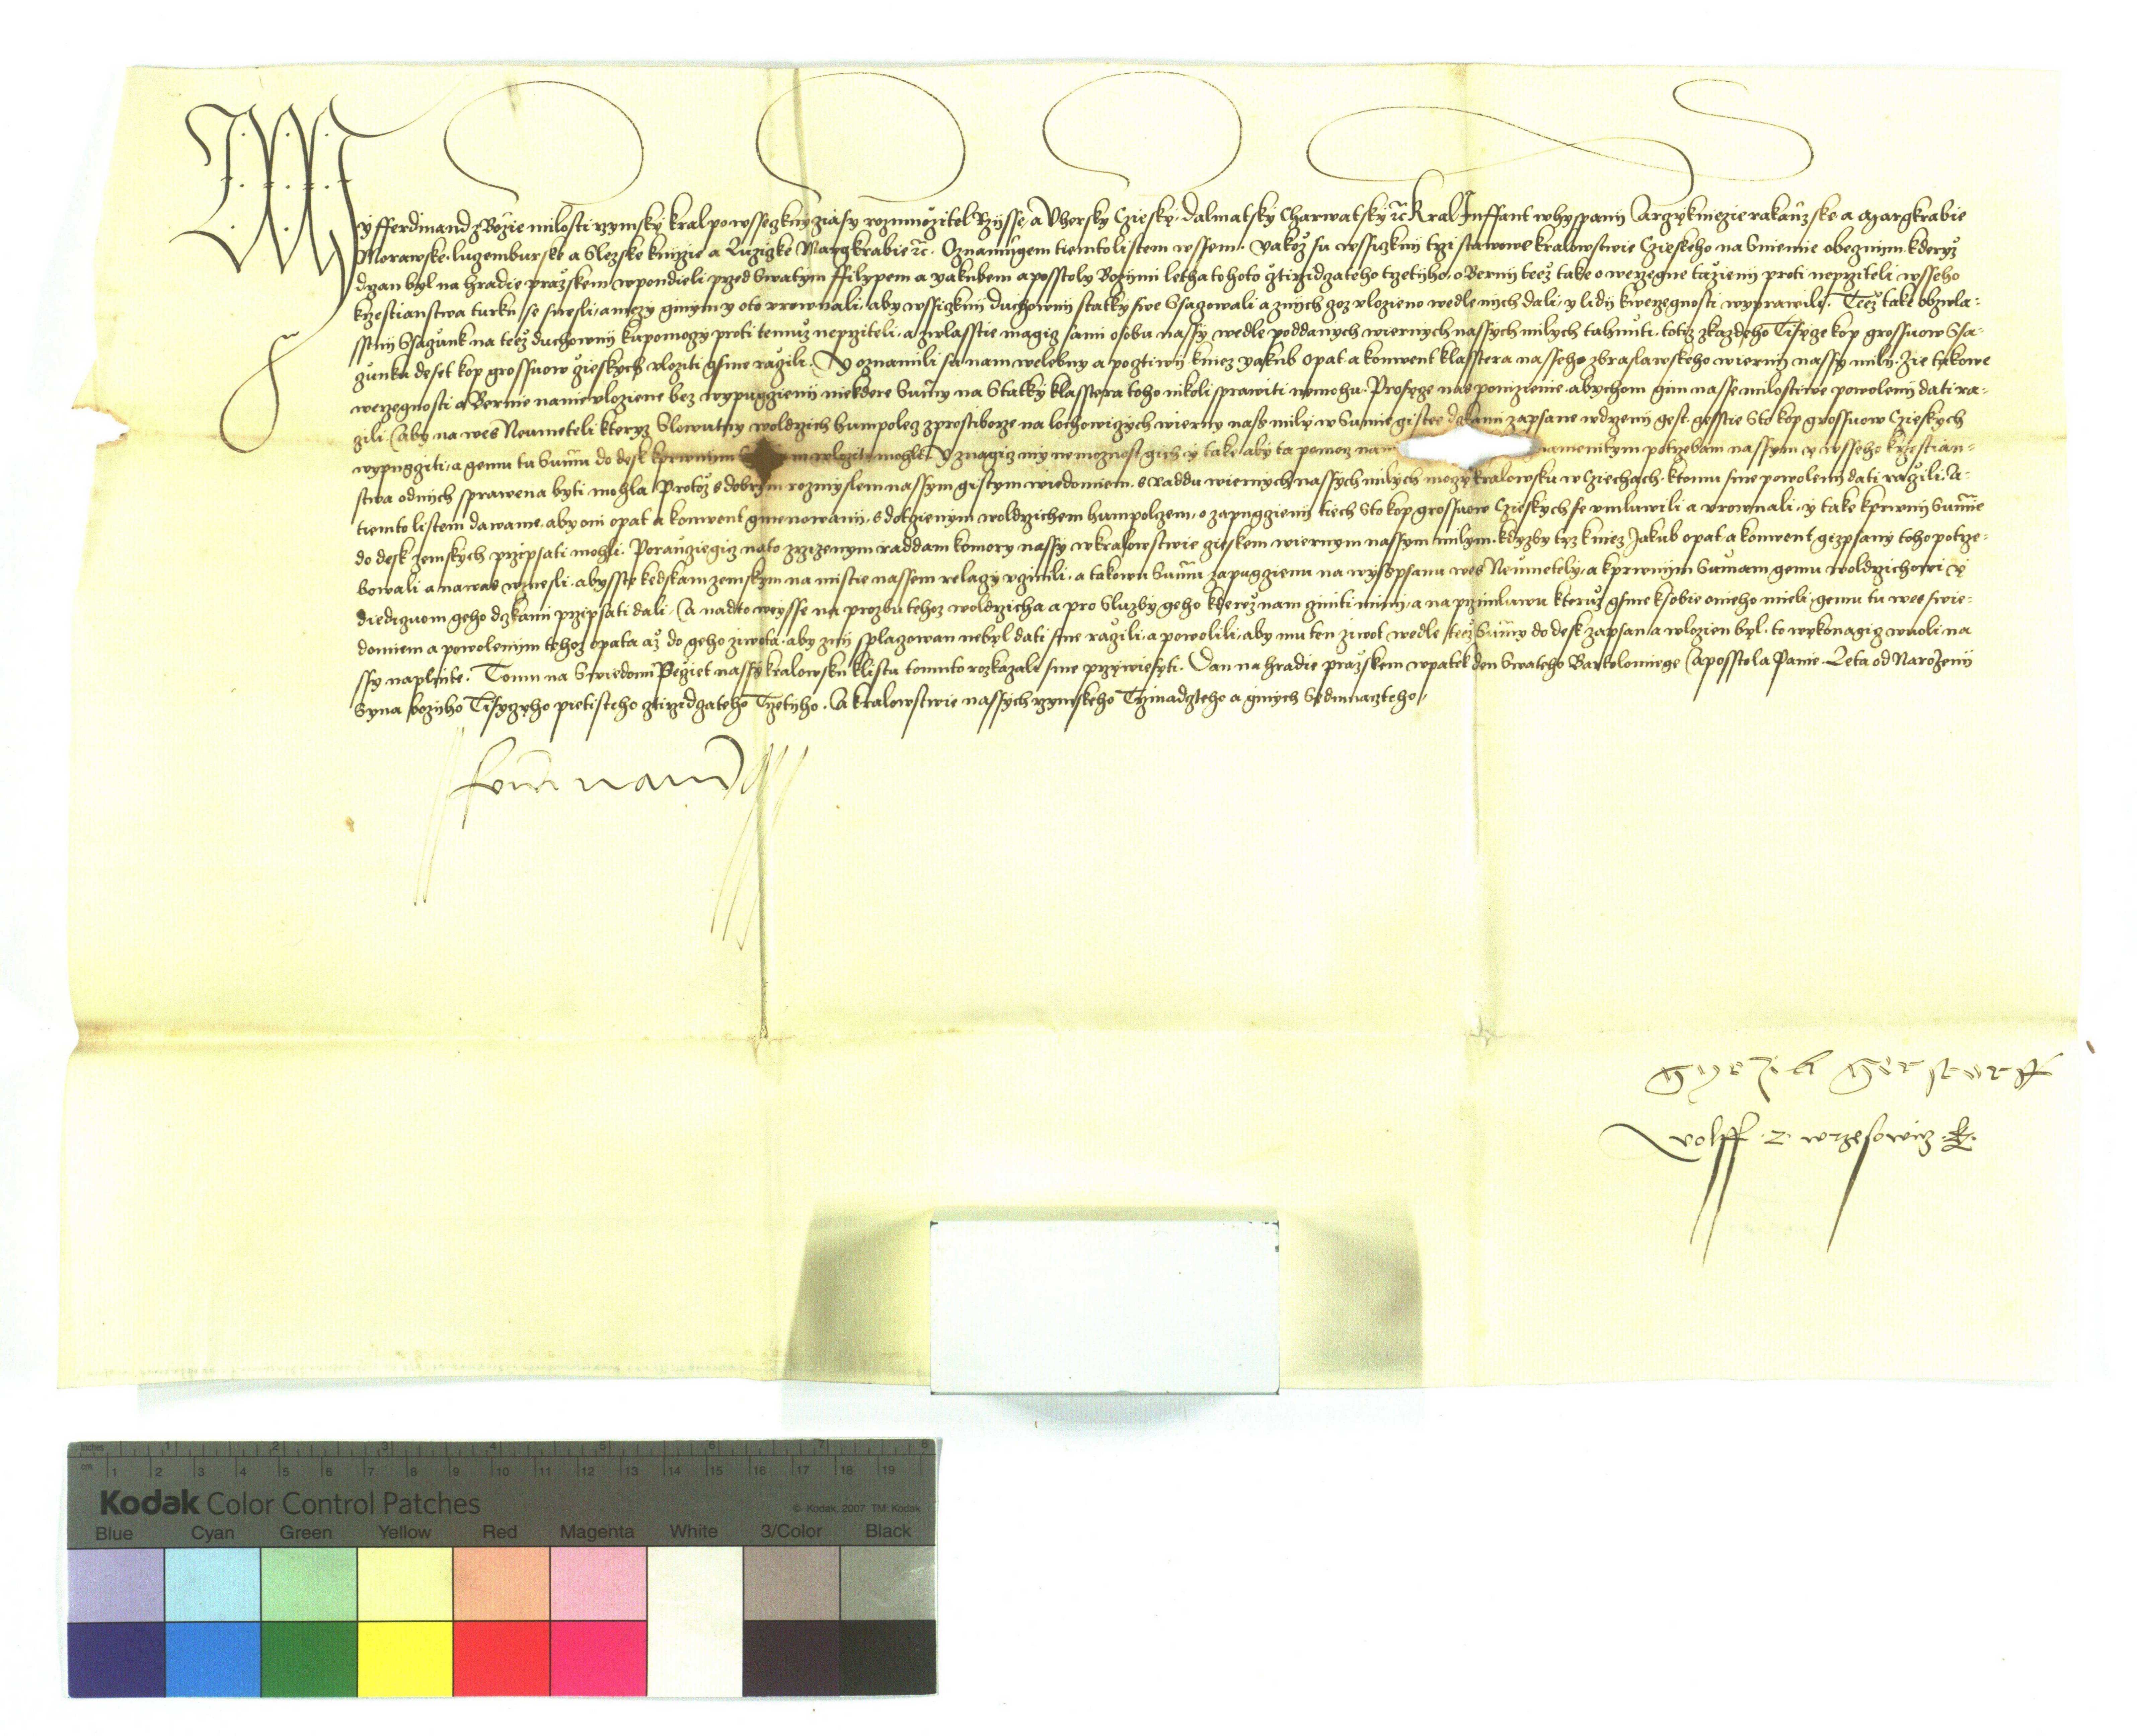 My fferdinand z Božie milosti rzymsky kral po wssezkny ziasy rozmnožitel Rzysse, a Vhersky Cziesky, Dalmatsky Charwatsky ꝛc̃ Kral Inffant w hyspanij Arzykniezie rakauzske a margkrabie
Morawske, luzemburske a Slezske kniže a Luzigke Margkrabie ꝛc̃. Oznamugem tiemto listem wssem. yakož su wssizkni trzi stawowe kralowstwie Czieskeho na Sniemie obeznym kderyž
drzan byl na hradie pražskem w pondieli przed Swatym ffilypem a yakubem aposstoly Božimi letha tohoto ztirzidzateho trzetyho. o Berny teež take o werzegne taženij proti neprziteli wsseho
krzestianstwa turku se snesli, a mezy ginym y o to srownali, aby wssizkni duchowni statky swe Ssazowali a z nych zoz vloženo wedle nych dali, y lidij k werzegnosti wyprawily. Teež take obzwla-
sstny Ssazunk na teež duchowny ku pomozy proti temuž neprziteli, a zwlasstie magiz sami osobu nassy wedle poddanych wiernych nassych milych tahnuti. totiz z kazdeho Tisyze kop grossuow Ssa-
zunku deset kop grossuow zieskych vloziti gsme razili. Y oznamili su nam welebny a pogtiwy kniez yakub opat a konwent klasstera nasseho zbraslawskeho wierni nassy mily. Zie takowe
werzegnosti a Bernie na nie vlozene bez wypugzieny niekdere Summy na Statky klasstera toho nikoli sprawiti nemohu. Prosyze nas ponizienie, abychom gim nasse milostiwe powoleny dati ra-
zili. Aby na wes Neumeteli kteryz Slowutny woldrzich humpolez z prostiborze na lochowizych wierny nass mily w Sumie gistee dskami zapsane w drzeny gest gesstie Sto kop grossuow Czieskych
wypugziti, a gemu tu Summu do desk k prwnim wloziti mohli. Y znagiz my nemoznost gich y take aby ta pomoz nam namenitym potrzebam nassym y wsseho krzestian-
stwa od nych sprawena byti mohla. Protož s dobrym rozmyslem nassym gistym wiedomiem, s raddu wiernych nassych milych mozy kralowsku w Cziechach, k tomu sme powoleny dati razili. A
tiemto listem dawame, aby oni opat a konwent gmenowany, s dotzienym woldrzichem humpolzem, o zapugzieny tiech Sto kop grossuow Czieskych se vmluwili a srownali, y take k prwny Summie
do desk zemskych przipsati mohli. Poraužiegiz na to zrzizenym raddam komory nassy w kralowstwie zieskem wiernym nassym milym, kdyžby tyz kniez Jakub opat a konwent gizpsany toho potrze-
bowali a na was wznesli, abysste ke dskam zemskym na mistie nassem relazy vzinili, a takowu Summu zapugzienu na wysspsanu wes Neumetely, a k prwnim Sumam, gemu woldrzichowi y
diedizuom geho dskami przipsati dali. A nad to weysse na prozbu tehoz woldrzicha a pro Sluzby geho kterež nam ziniti minij, a na przimluwu kteruž gsme k sobie o nieho mieli, gemu tu wes s wie-
domiem a powolenym tehoz opata až do geho ziwota, aby z nij splazowan nebyl dati sme razili, a powolili, aby mu ten ziwot wedle teež Summy do desk zapsan a wlozien byl. to wykonagiz wuoli na
ssy naplnite. Tomu na Swiedomi Pezet nassy kralowsku k listu tomuto rozkazali sme przywiesyti. Dan na hradie pražskem w patek den Swateho Bartolomiege Aposstola Panie. Leta od Naroženij
Syna božiho Tisyzyho pietisteho ztirzidzateho Trzetiho. A kralowstwie nassych rzymskeho Trzinadzteho a ginych Sedmnazteho,
Ferdinand
Gyržik Gerstorff
Wolff z wrzesowiz
inches 1 2 3 4 5 6 7 8
cm 1 2 3 4 5 6 7 8 9 10 11 12 13 14 15 16 17 18 19
Kodak Color Control Patches
© Kodak, 2007 TM: Kodak
Blue Cyan Green Yellow Red Magenta White 3/Color Black